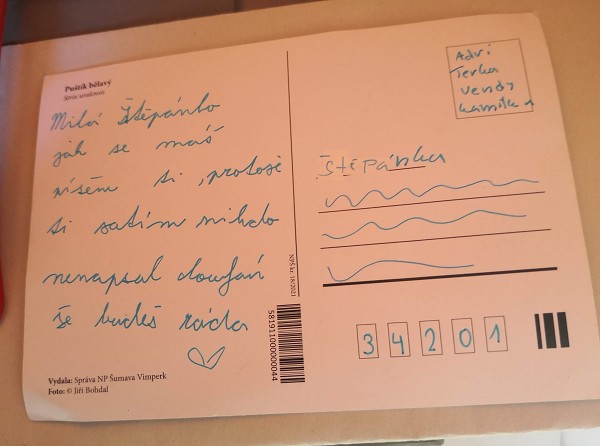 Puštík bělavý
Strix uralensis
Milá Štěpánko
jak se máš
píšem ti, protože
ti zatím nikdo
nenapsal doufám
že budeš ráda
Vydala: Správa NP Šumava Vimperk
Foto: © Jiří Bohdal
NPŠ š.t. 1K/2021
581911000000044
Adri
Terka
Vendy
Kamilka
Štěpánka
34201